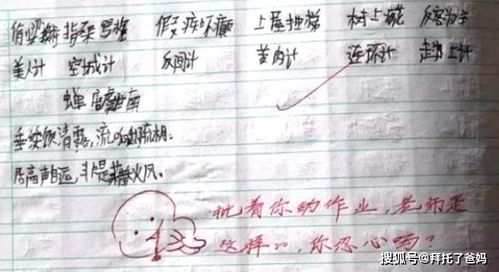 指桑骂槐 假痴不癫 上屋抽梯 树上开花 反客为主
美人计 空城计 反间计 苦肉计 连环计 走为上计
蝉 虞世南
垂緌饮清露，流响出疏桐。
居高声自远，非是藉秋风。
批着你的作业，老师是
这样的，你忍心吗？
搜狐号@拜托了爸妈